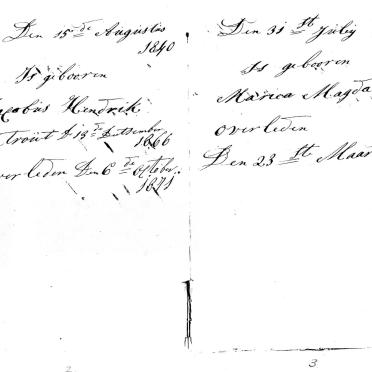 Den 15 de Augustus
1840
Is gebooren
acobus Hendrik
trout D 13 de Dutsember
1866
ver leden Den 6 de October
1871
2
Den 31 st Julij
Is gebooren
Marica Magda
overleden
Den 23 st Maar
3